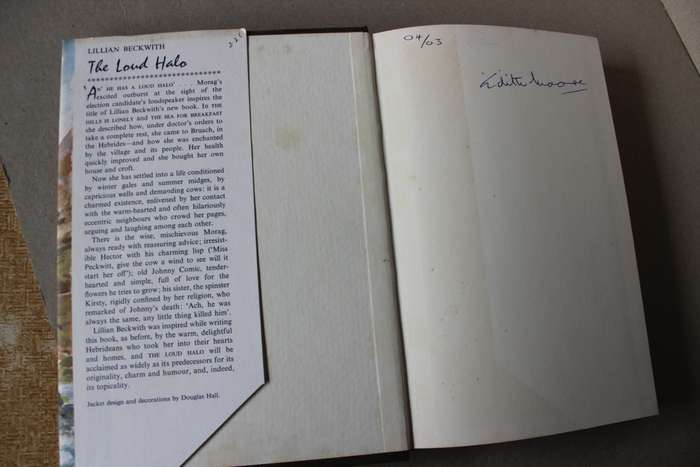 LILLIAN BECKWITH
The Loud Halo
'AN' HE HAS A LOUD HALO' . . . Morag's
excited outburst at the sight of the
election candidate's loudspeaker inspires the
title of Lillian Beckwith's new book. In THE
HILLS IS LONELY and THE SEA FOR BREAKFAST
she described how, under doctor's orders to
take a complete rest, she came to Bruach, in
the Hebrides—and how she was enchanted
by the village and its people. Her health
quickly improved and she bought her own
house and croft.
Now she has settled into a life conditioned
by winter gales and summer midges, by
capricious wells and demanding cows: it is a
charmed existence, enlivened by her contact
with the warm-hearted and often hilariously
eccentric neighbours who crowd her pages,
arguing and laughing among each other.
There is the wise, mischievous Morag,
always ready with reassuring advice; irresist-
ible Hector with his charming lisp ('Miss
Peckwitt, give the cow a wind to see will it
start her off'); old Johnny Comic, tender-
hearted and simple, full of love for the
flowers he tries to grow; his sister, the spinster
Kirsty, rigidly confined by her religion, who
remarked of Johnny's death: 'Ach, he was
always the same, any little thing killed him'.
Lillian Beckwith was inspired while writing
this book, as before, by the warm, delightful
Hebrideans who took her into their hearts
and homes, and THE LOUD HALO will be
acclaimed as widely as its predecessors for its
originality, charm and humour, and, indeed,
its topicality.
Jacket design and decorations by Douglas Hall.
04/03
Edith Moore